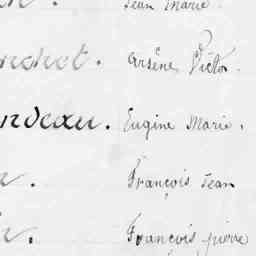 Jean Marie
nchet. Arsène Victor.
ndeau. Eugine Marie.
n. François Jean
n. François pierre